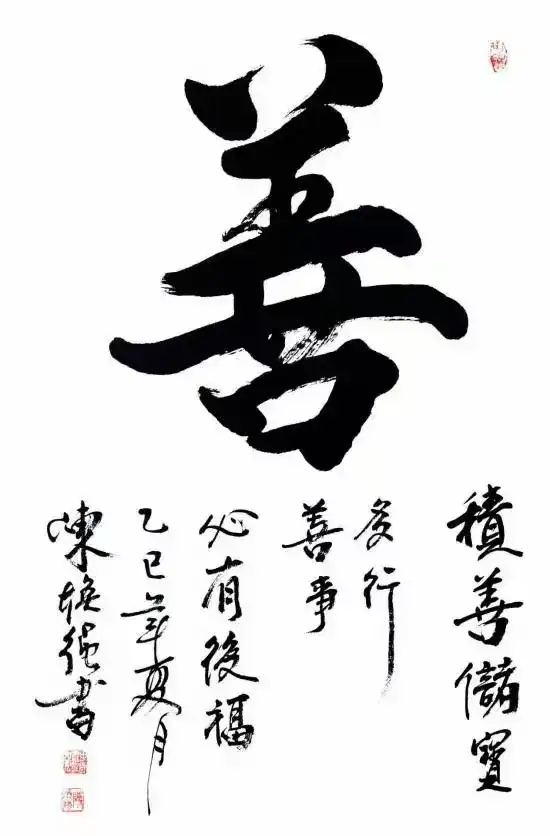 善
積善儲寶
多行
善事
必有後福
乙巳年夏月
陳換強書